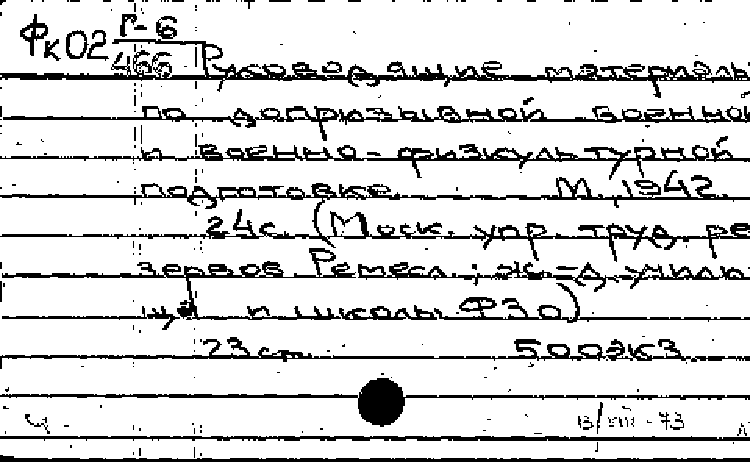 Фк02 Г-6
466 Руководящие материалы
по допризывной военной
и военно-физкультурной
подготовке. М., 1942.
24с. (Моск. упр. труд. ре
зервов Ремесл., ж-д. учили
ща и школы ФЗО)
23 см. 500экз
Ч. 13/VIII-73